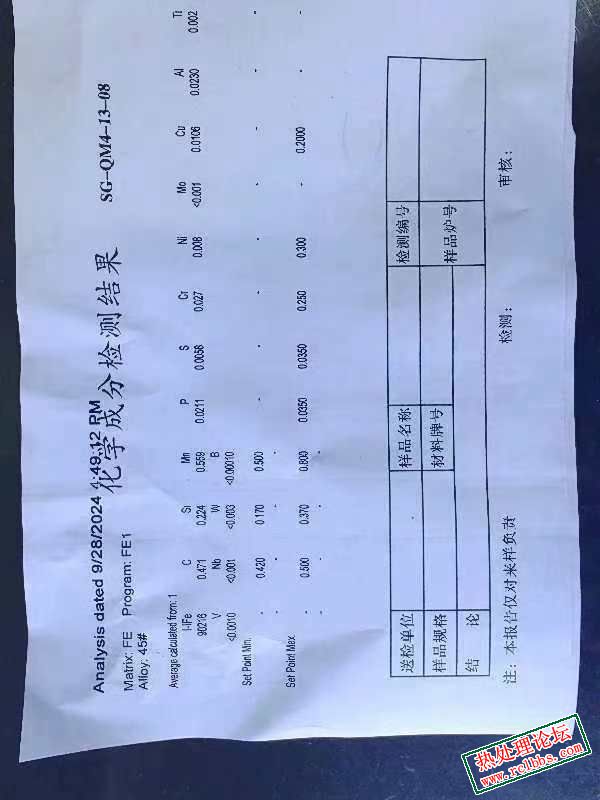 Analysis dated 9/28/2024 4:49:12 PM
化学成分检测结果 SG-QM4-13-08
Matrix: FE Program: FE1
Alloy: 45#
Average calculated from: 1
I-IFe C Si Mn P S Cr Ni Mo Cu Al Ti
90216 0.471 0.224 0.559 0.0211 0.0058 0.027 0.008 <0.001 0.0106 0.0230 0.002
V Nb W B
<0.0010 <0.001 <0.003 <0.00010
Set Point Min.
- 0.420 0.170 0.500 - - - - - - - -
- - - -
Set Point Max.
- 0.500 0.370 0.800 0.0350 0.0350 0.250 0.300 - 0.2000 - -
- - - -
送检单位 样品名称 检测编号
样品规格 材料牌号 样品炉号
结 论
注：本报告仅对来样负责 检测： 审核：
热处理论坛
www.rclbbs.com